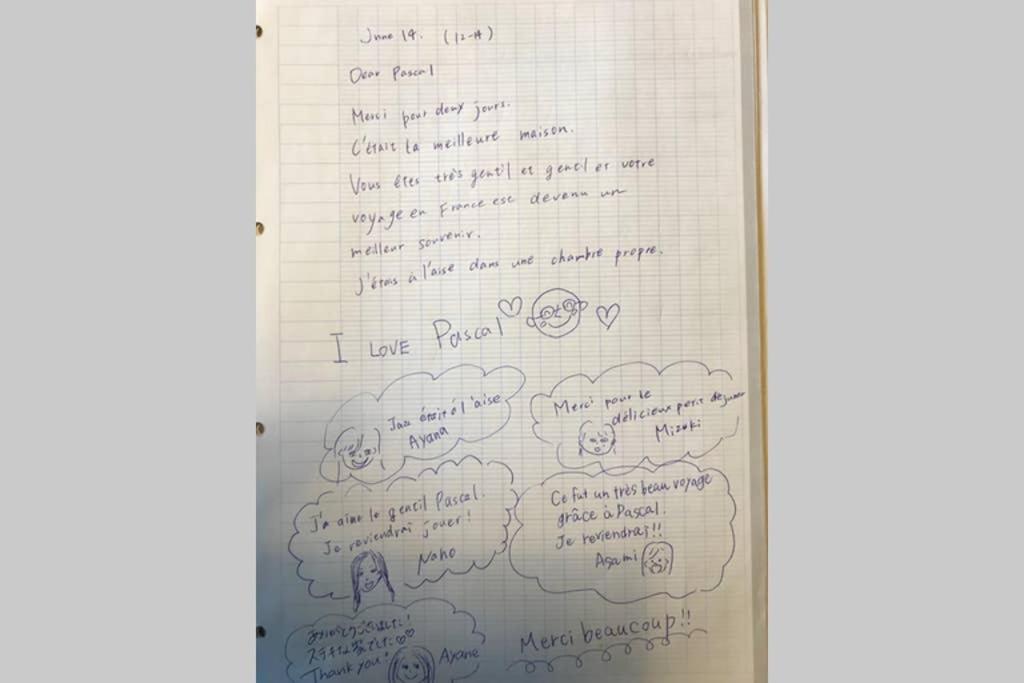 June 14.
Dear Pascal
Merci pour deux jours.
C'était la meilleure maison.
Vous êtes très gentil et gentil et votre
voyage en France est devenu un
meilleur souvenir.
J'étais à l'aise dans une chambre propre.
I LOVE Pascal
était à l'aise
Ayana
Merci pour le
délicieux petit
Mizuki
J'a aime le gentil Pascal.
Je reviendrai jouer!
Naho
Ce fut un très beau voyage
grâce à Pascal.
Je reviendrai!!
Asami
ありがとうございました!
ステキな家でした♡♡
Thank you!
Ayane
Merci beaucoup!!